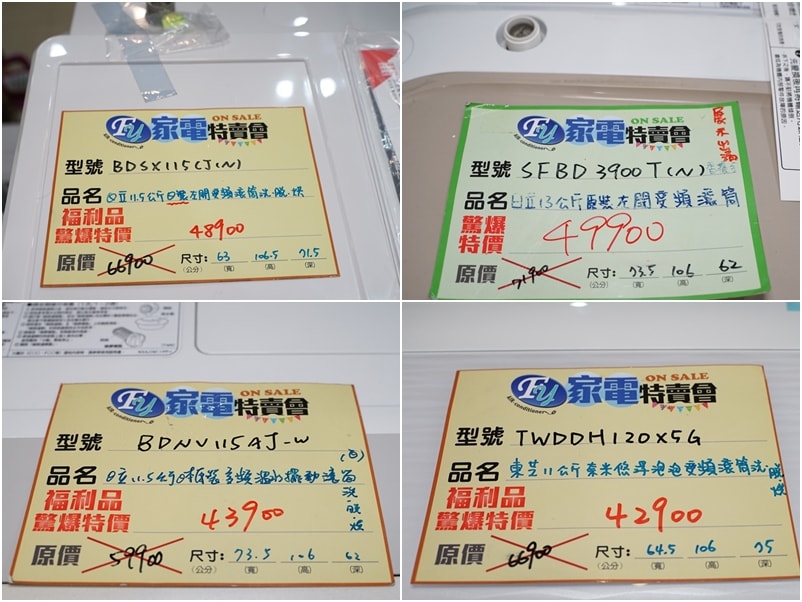 Fu
Air conditioner
ON SALE
家電特賣會
型號 BDSX115CJ(N)
品名 日立11.5公斤日製左開變頻滾筒洗.脫.烘
福利品
驚爆特價 48900
原價 66900 尺寸: 63 106.5 71.5
(公分) (寬) (高) (深)
Fu
Air conditioner
ON SALE
家電特賣會
型號 SFBD3900T(N)
品名 日立13公斤原裝左開變頻滾筒
驚爆
特價 49900
原價 71900 尺寸: 73.5 106 62
(公分) (寬) (高) (深)
Fu
Air conditioner
ON SALE
家電特賣會
型號 BDNV115AJ-W (白)
品名 日立11.5公斤日本原裝變頻溫水擺動滾筒
洗.脫.烘
福利品
驚爆特價 43900
原價 59900 尺寸: 73.5 106 62
(公分) (寬) (高) (深)
Fu
Air conditioner
ON SALE
家電特賣會
型號 TWDDH120X5G
品名 東芝11公斤奈米悠浮泡泡變頻滾筒洗
脫烘
福利品
驚爆特價 42900
原價 66900 尺寸: 64.5 106 75
(公分) (寬) (高) (深)